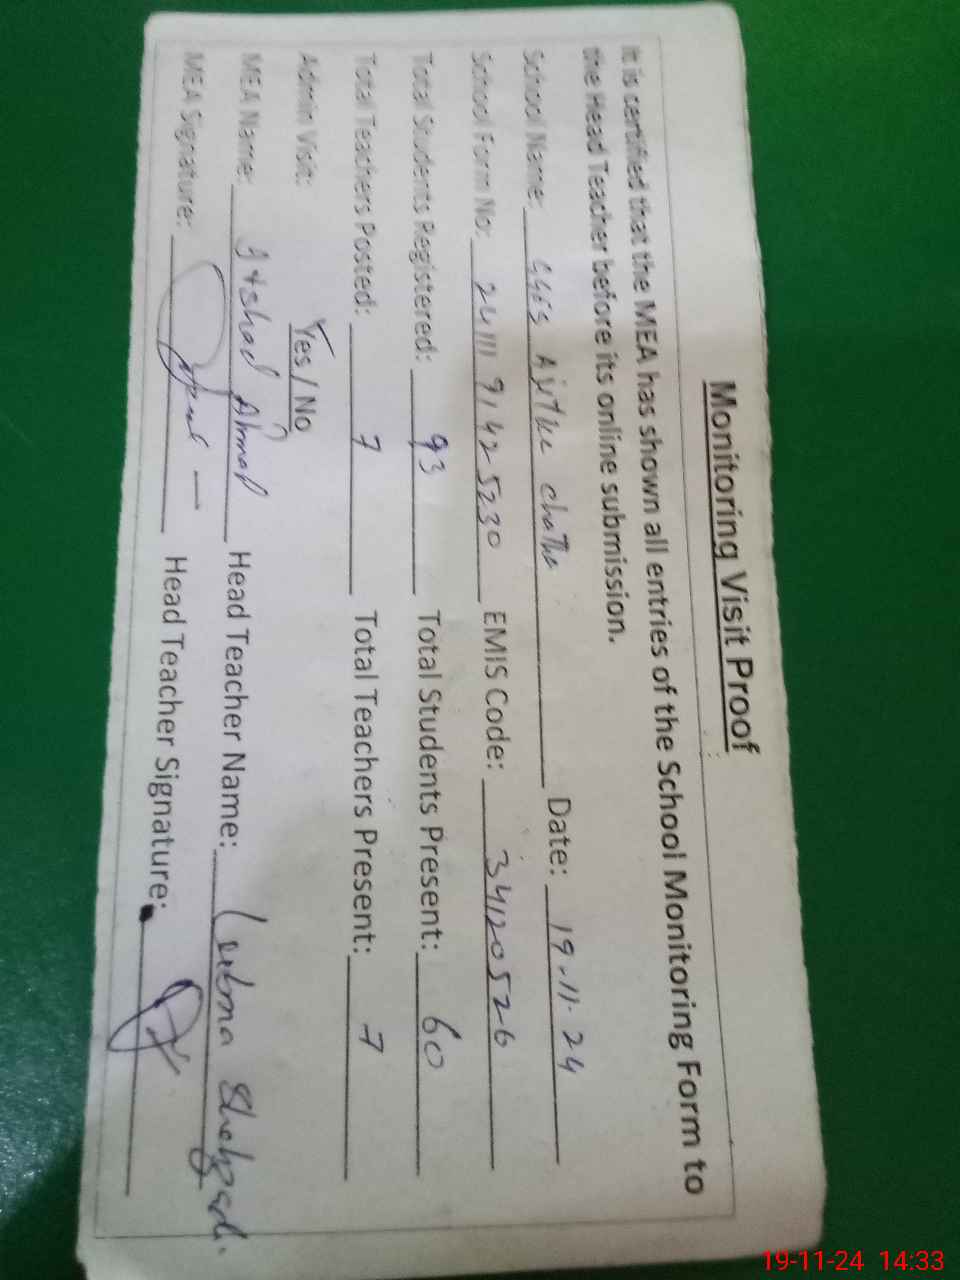 Monitoring Visit Proof
It is certified that the MEA has shown all entries of the School Monitoring Form to
the Head Teacher before its online submission.
School Name: GGES chatha Date: 19-11-24
School Form No: 24111 9142 5230 EMIS Code: 34120526
Total Students Registered: 93 Total Students Present: 60
Total Teachers Posted: 7 Total Teachers Present: 7
Admin Visit: Yes / No
MEA Name: Ahmad Head Teacher Name: Lubna Shehzadi.
MEA Signature: Head Teacher Signature:
19-11-24 14:33